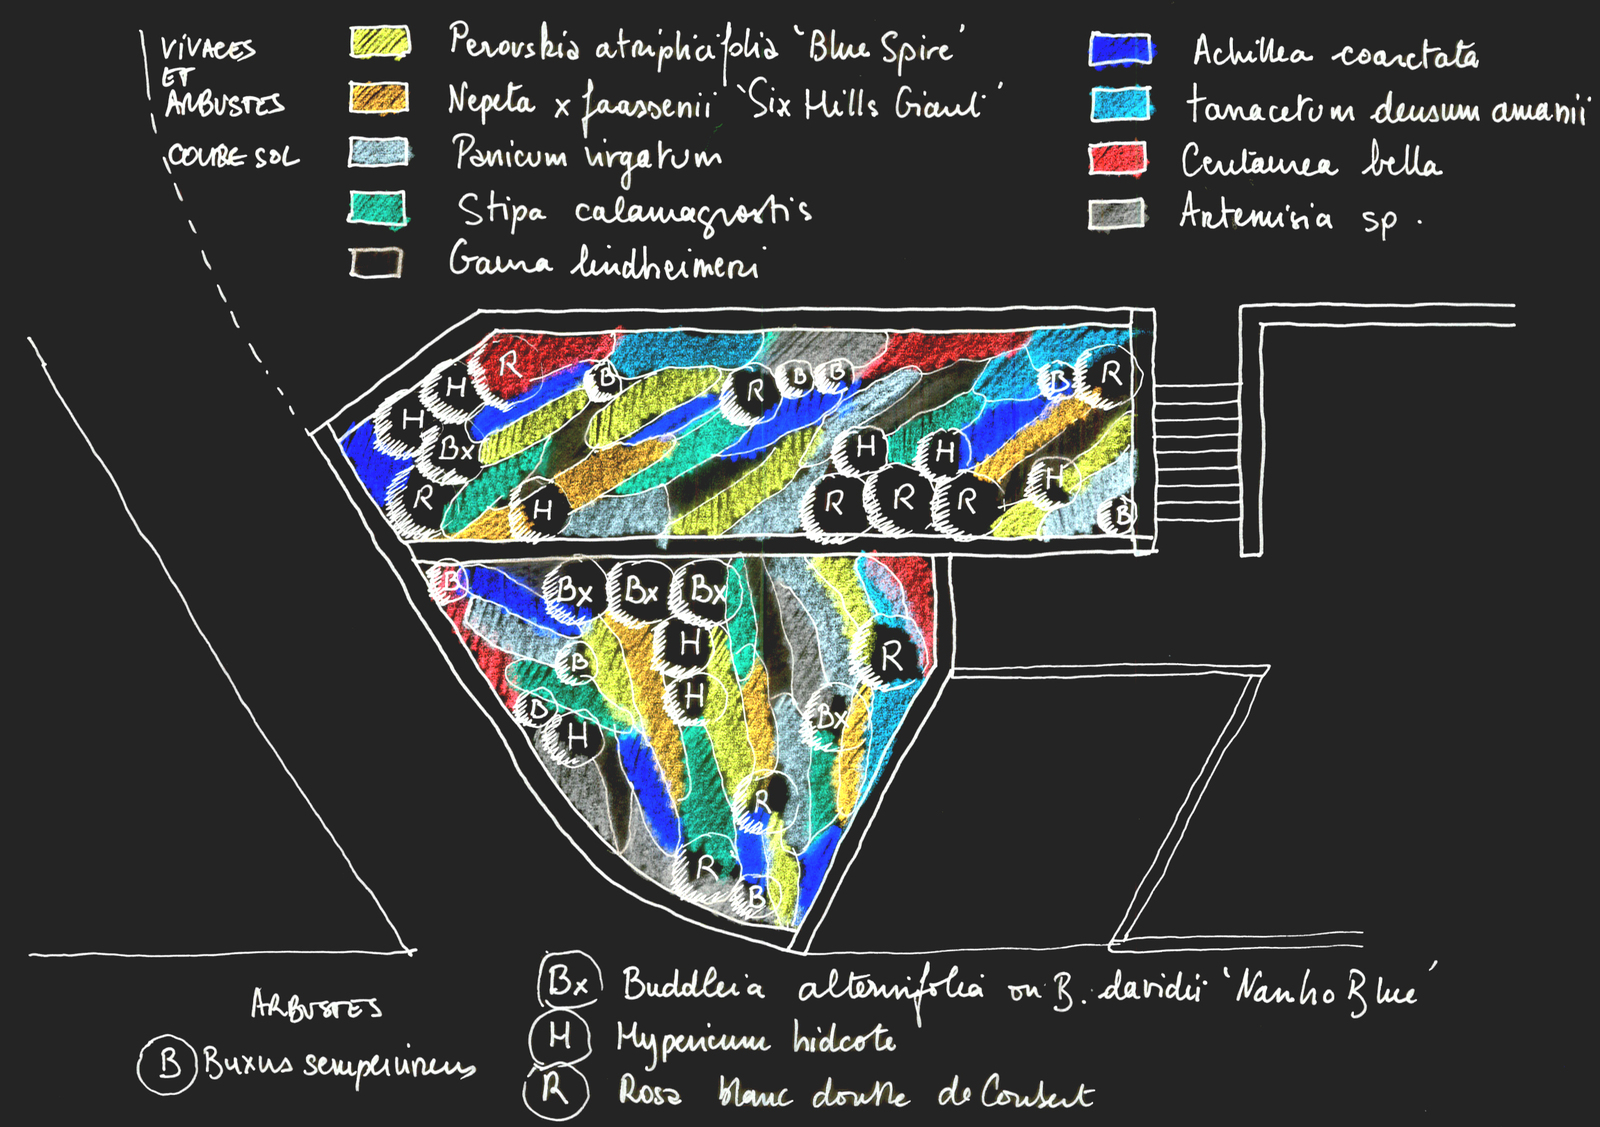 VIVACES
ET
ARBUSTES
COUBE SOL
Perovskia atriplicifolia 'Blue Spire'
Nepeta x faassenii 'Six Hills Giant'
Panicum virgatum
Stipa calamagrostis
Gaura lindheimeri
Achillea coarctata
tanacetum densum amanii
Centaurea bella
Artemisia sp.
R
H
H
Bx
R
B
H
R
B
B
H
H
R
R
R
B
R
H
B
B
Bx
Bx
Bx
H
H
B
B
H
R
Bx
R
R
B
ARBUSTES
B Buxus sempervirens
Bx Buddleia alternifolia ou B. davidii 'Nanho Blue'
H Hypericum hidcote
R Rosa blanc double de Coubert